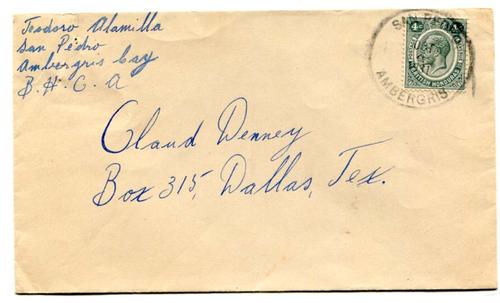 Teodoro Alamilla
San Pedro
Ambergris Cay
B. H. C. A
SAN PEDRO
AMBERGRIS
4
BRITISH HONDURAS
Claud Denney
Box 315, Dallas, Tex.